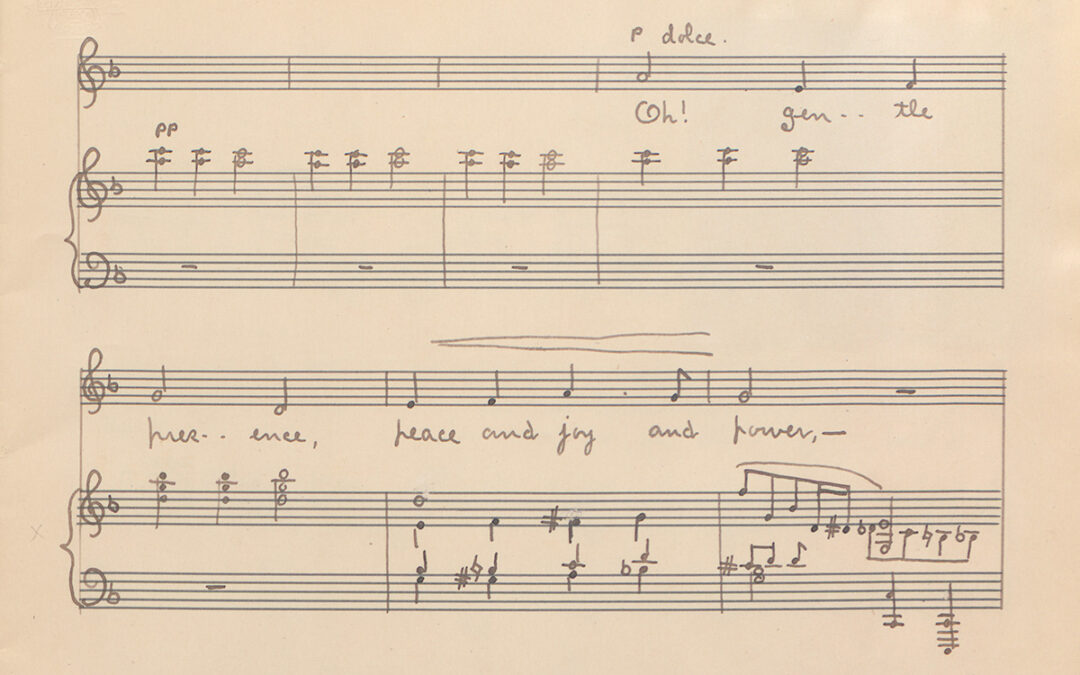 p dolce.
Oh! gen-- tle
pp
pres-- ence, peace and joy and power,—